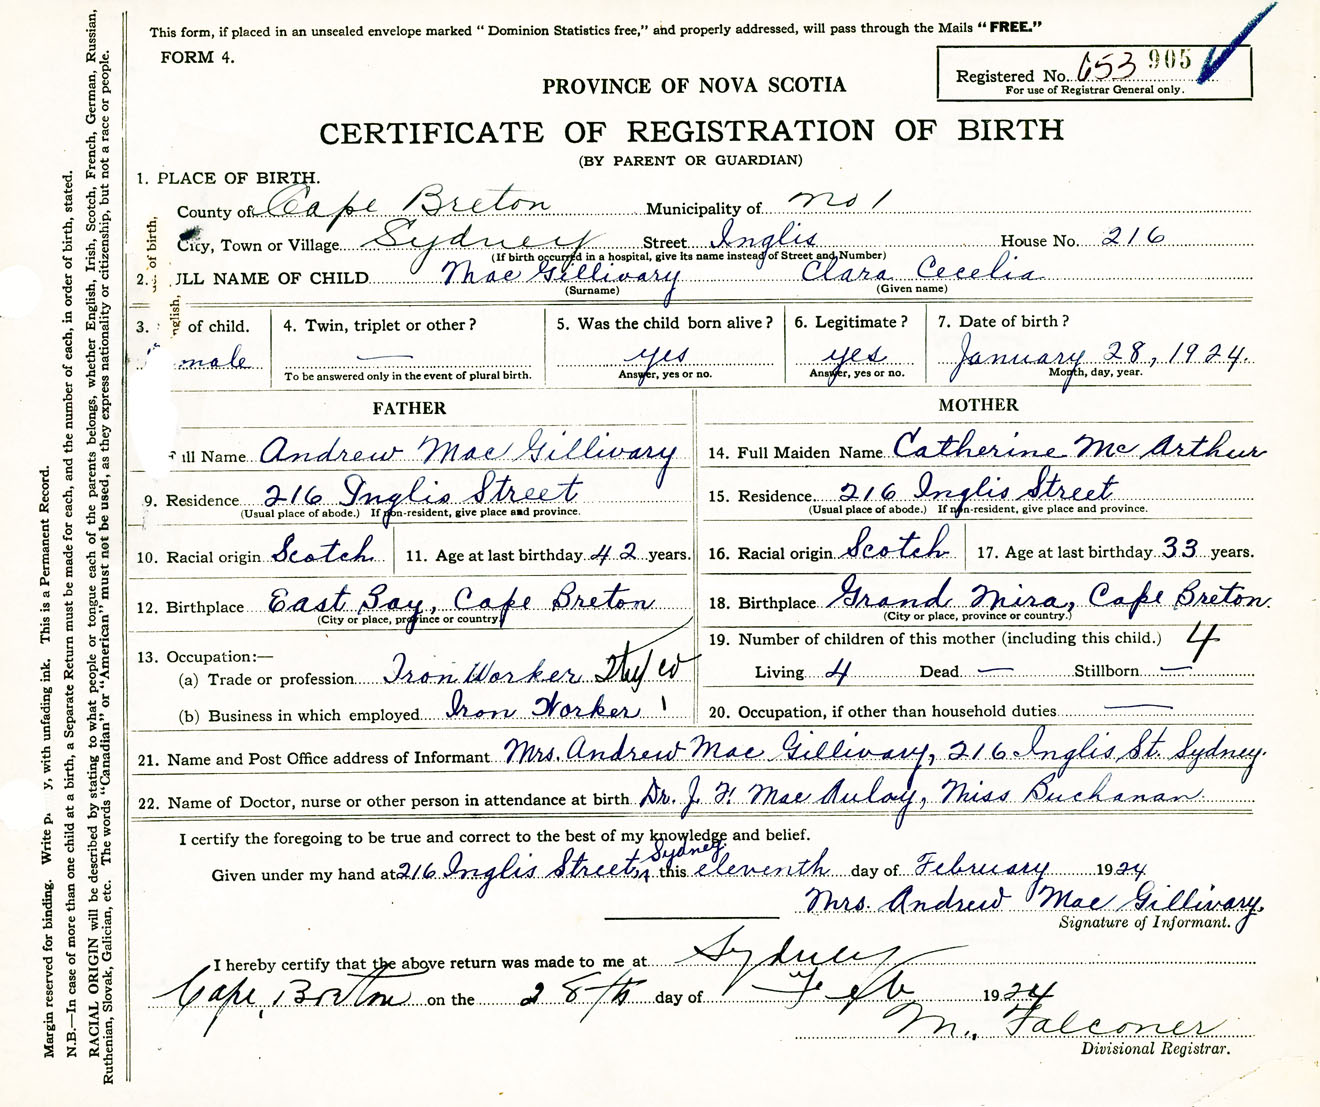 This form, if placed in an unsealed envelope marked “Dominion Statistics free,” and properly addressed, will pass through the Mails “FREE.”
FORM 4.
Registered No. 653 905
For use of Registrar General only.
PROVINCE OF NOVA SCOTIA
CERTIFICATE OF REGISTRATION OF BIRTH
(BY PARENT OR GUARDIAN)
1. PLACE OF BIRTH.
County of Cape Breton Municipality of No 1
City, Town or Village Sydney Street Inglis House No. 216
(If birth occurred in a hospital, give its name instead of Street and Number)
2. ULL NAME OF CHILD Mac Gillivary Clara Cecelia
(Surname) (Given name)
3. of child. 4. Twin, triplet or other? 5. Was the child born alive? 6. Legitimate? 7. Date of birth?
male — yes yes January 28, 1924.
To be answered only in the event of plural birth. Answer, yes or no. Answer, yes or no. Month, day, year.
FATHER
ull Name Andrew Mac Gillivary
9. Residence 216 Inglis Street
(Usual place of abode.) If non-resident, give place and province.
10. Racial origin Scotch 11. Age at last birthday 42 years.
12. Birthplace East Bay, Cape Breton
(City or place, province or country.)
13. Occupation:—
(a) Trade or profession Iron Worker
(b) Business in which employed Iron Worker
MOTHER
14. Full Maiden Name Catherine Mc Arthur
15. Residence 216 Inglis Street
(Usual place of abode.) If non-resident, give place and province.
16. Racial origin Scotch 17. Age at last birthday 33 years.
18. Birthplace Grand Mira, Cape Breton.
(City or place, province or country.)
19. Number of children of this mother (including this child.) 4
Living 4 Dead — Stillborn —
20. Occupation, if other than household duties —
21. Name and Post Office address of Informant Mrs. Andrew Mac Gillivary, 216 Inglis St. Sydney.
22. Name of Doctor, nurse or other person in attendance at birth Dr. J. F. Mac Auloy, Miss Buchanan.
I certify the foregoing to be true and correct to the best of my knowledge and belief.
Given under my hand at 216 Inglis Street, Sydney. this eleventh day of February 1924
Mrs. Andrew Mac Gillivary.
Signature of Informant.
I hereby certify that the above return was made to me at Sydney
Cape Breton on the 28th day of Feb 1924
M. Falconer
Divisional Registrar.
Margin reserved for binding. Write p y, with unfading ink. This is a Permanent Record.
N.B.—In case of more than one child at a birth, a Separate Return must be made for each, and the number of each, in order of birth, stated.
RACIAL ORIGIN will be described by stating to what people or tongue each of the parents belongs, whether English, Irish, Scotch, French, German, Russian,
Ruthenian, Slovak, Galician, etc. The words “Canadian” or “American” must not be used, as they express nationality or citizenship, but not a race or people.
of birth,
nglish,